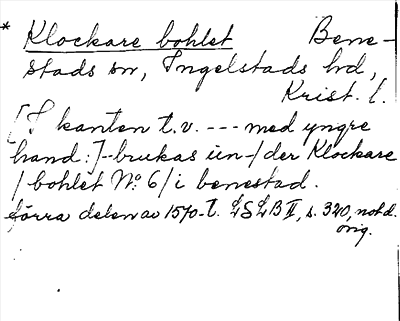 * Klockare bohlet Bene-
stads sn, Ingelstads hd,
Krist. l.
[I kanten t.v. --- med yngre
hand:]-brukas un-/der Klockare
/bohlet No: 6/i benestad.
förra delen av 1570-t. LSLB II, s. 320, not d.
orig.